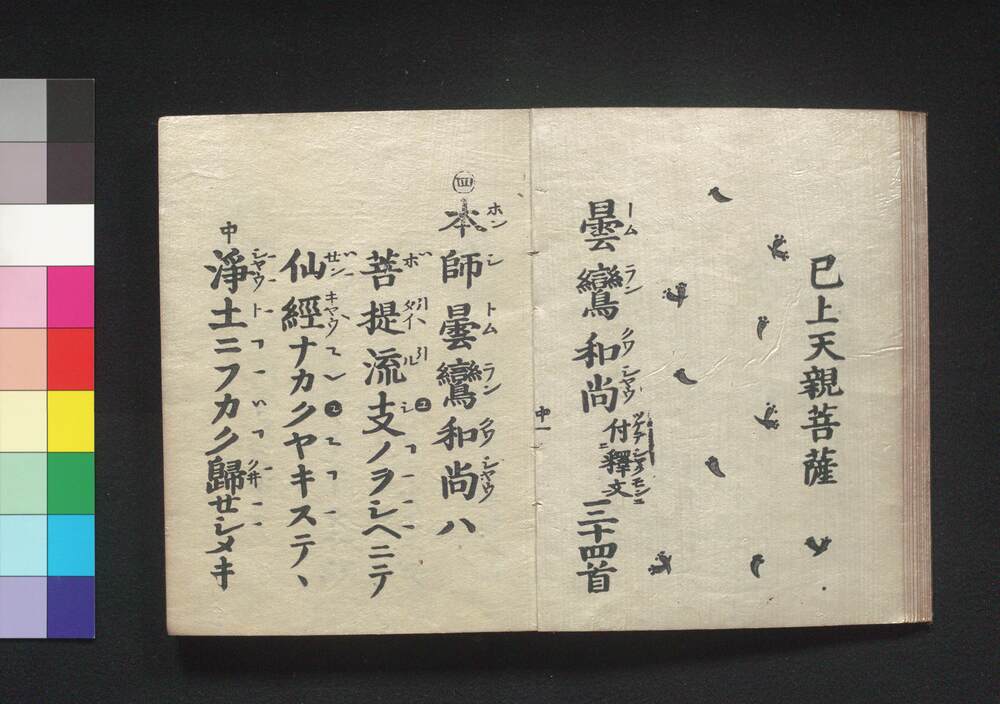 已上天親菩薩
曇鸞和尚付釋文三十四首
中一
四
本師曇鸞和尚ハ
菩提流支ノヲシヘニテ
仙經ナカクヤキステヽ
中
淨土ニフカク歸せシメキ